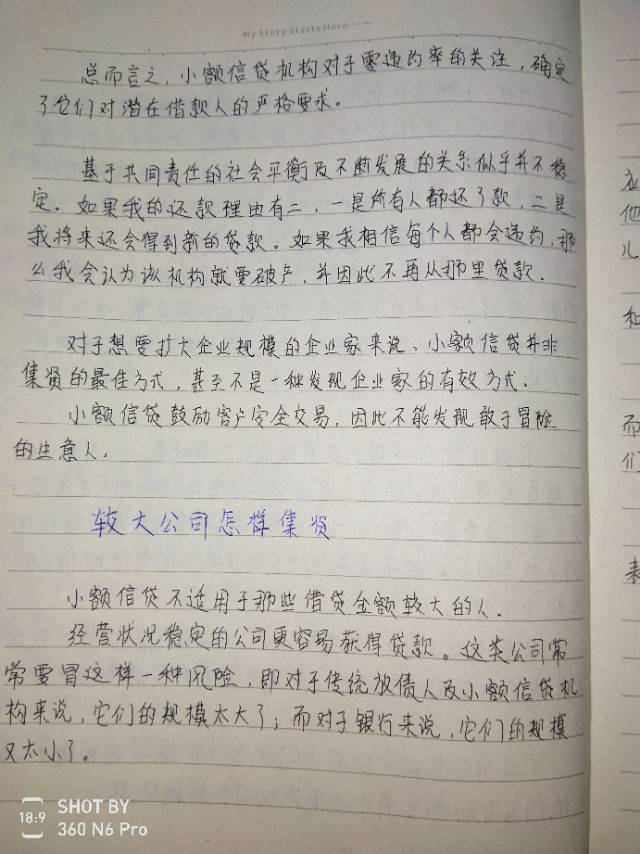 My Story Starts Here
总而言之，小额信贷机构对于零违约率的关注，确定
了它们对潜在借款人的严格要求。
基于共同责任的社会平衡及不断发展的关系似乎并不稳
定。如果我的还款理由有二，一是所有人都还了款，二是
我将来还会得到新的贷款。如果我相信每个人都会违约，那
么我会认为该机构就要破产，并因此不再从那里贷款.
对于想要扩大企业规模的企业家来说、小额信贷并非
集贤的最佳方式，甚至不是一种发现企业家的有效方式.
小额信贷鼓励客户安全交易，因此不能发现敢于冒险
的生意人.
较大公司怎样集贤
小额信贷不适用于那些借贷金额较大的人.
经营状况稳定的公司更容易获得贷款。这类公司常
常要冒这样一种风险，即对于传统放债人及小额信贷机
构来说，它们的规模太大了；而对于银行来说，它们的规模
又太小了。
他
儿
和
而
们
18:9 SHOT BY
360 N6 Pro